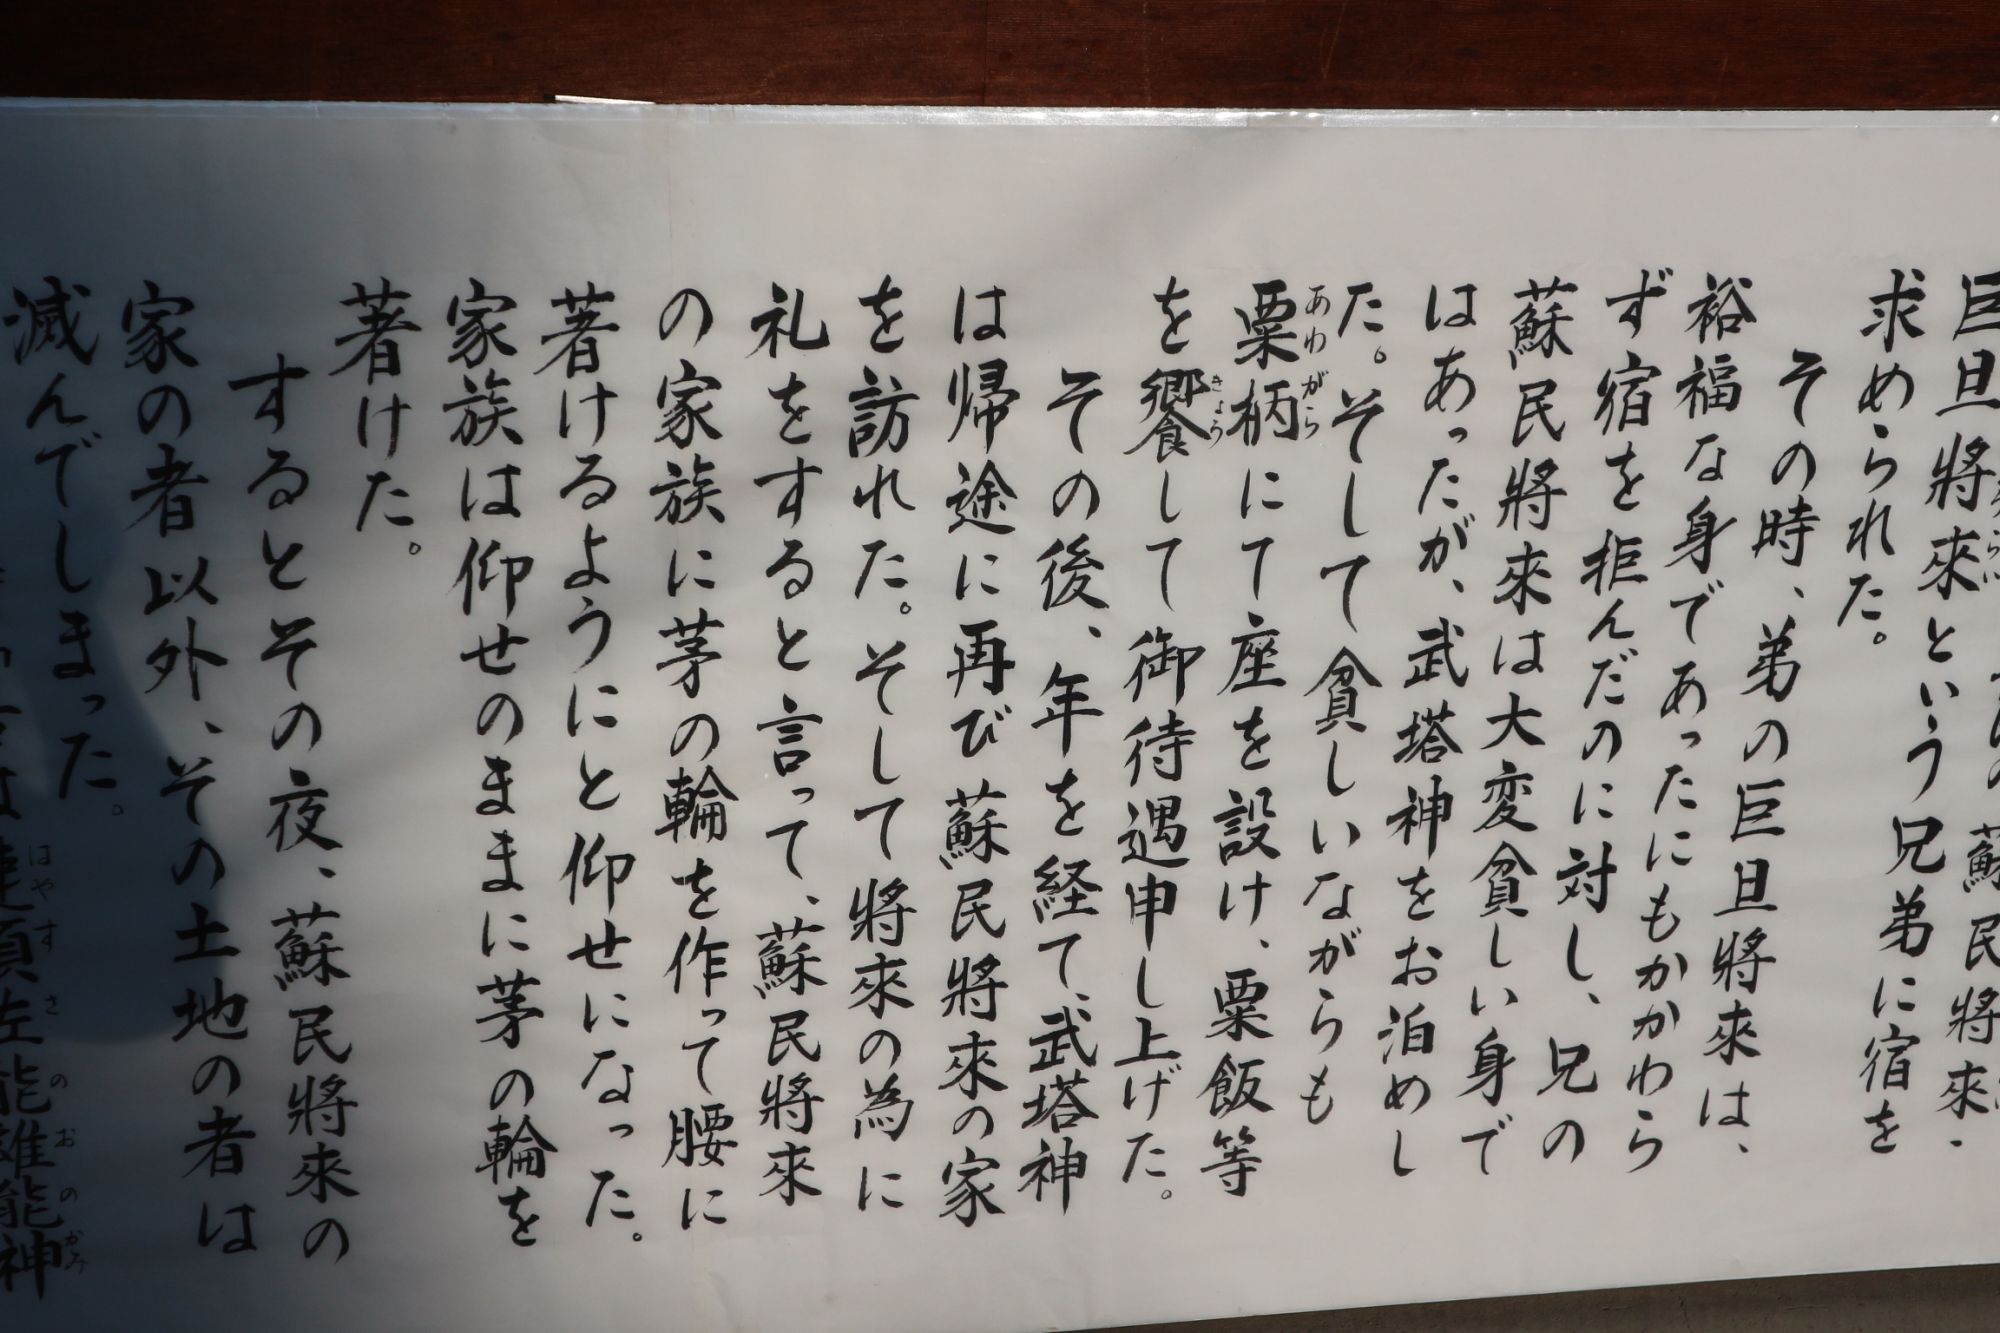 蘇民將来・
巨旦將来という兄弟に宿を
求められた。
その時、弟の巨旦將来は、
裕福な身であったにもかかわら
ず宿を拒んだのに対し、兄の
蘇民將来は大変貧しい身で
はあったが、武塔神をお泊めし
た。そして貧しいながらも
粟柄にて座を設け、粟飯等
あわがら
を饗して御待遇申し上げた。
きょう
その後、年を経て、武塔神
は帰途に再び蘇民將来の家
を訪れた。そして將来の為に
礼をすると言って、蘇民將来
の家族に茅の輪を作って腰に
著けるようにと仰せになった。
家族は仰せのままに茅の輪を
著けた。
するとその夜、蘇民將来の
家の者以外、その土地の者は
滅んでしまった。
は建須佐能雄能神
はやすさのおのかみ